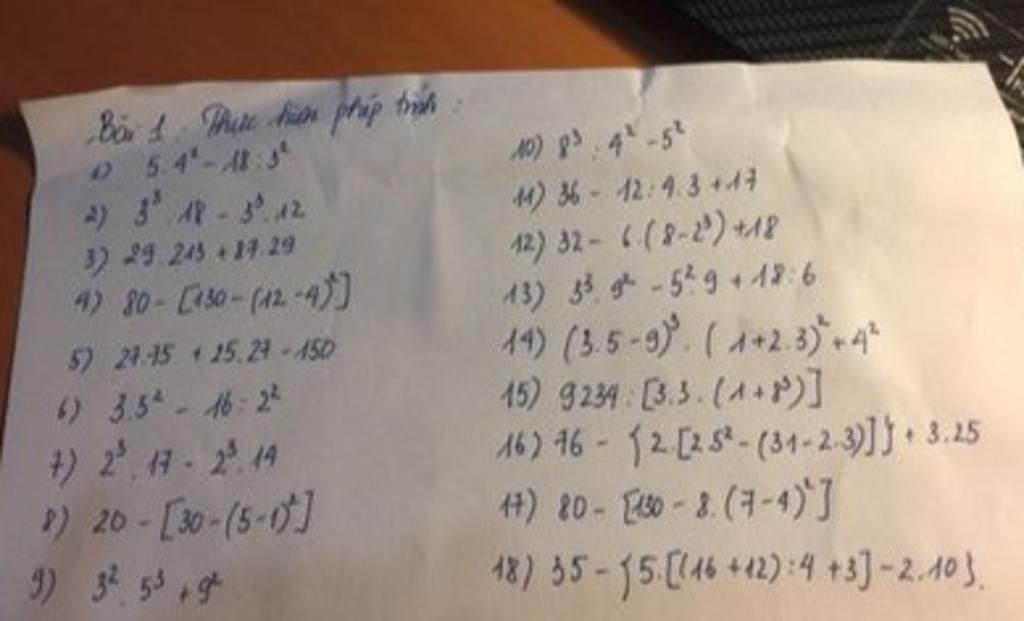 Bài 1 : Thực hiện phép tính :
1) 5.4² - 18 : 3²
2) 3³.18 - 3³.12
3) 29.213 + 87.29
4) 80 - [130 - (12 - 4)²]
5) 27.75 + 25.27 - 150
6) 3.5² - 16 : 2²
7) 2³.17 - 2³.14
8) 20 - [30 - (5-1)²]
9) 3².5³ + 9²
10) 8³ : 4² - 5²
11) 36 - 12 : 4.3 + 17
12) 32 - 6.(8 - 2³) + 18
13) 3³.9² - 5².9 + 18 : 6
14) (3.5 - 9)³.(1+2.3)² + 4²
15) 9234 : [3.3.(1+8³)]
16) 76 - {2.[2.5² - (31 - 2.3)]} + 3.25
17) 80 - [130 - 8.(7-4)²]
18) 35 - {5.[(16+12) : 4 + 3] - 2.10}.